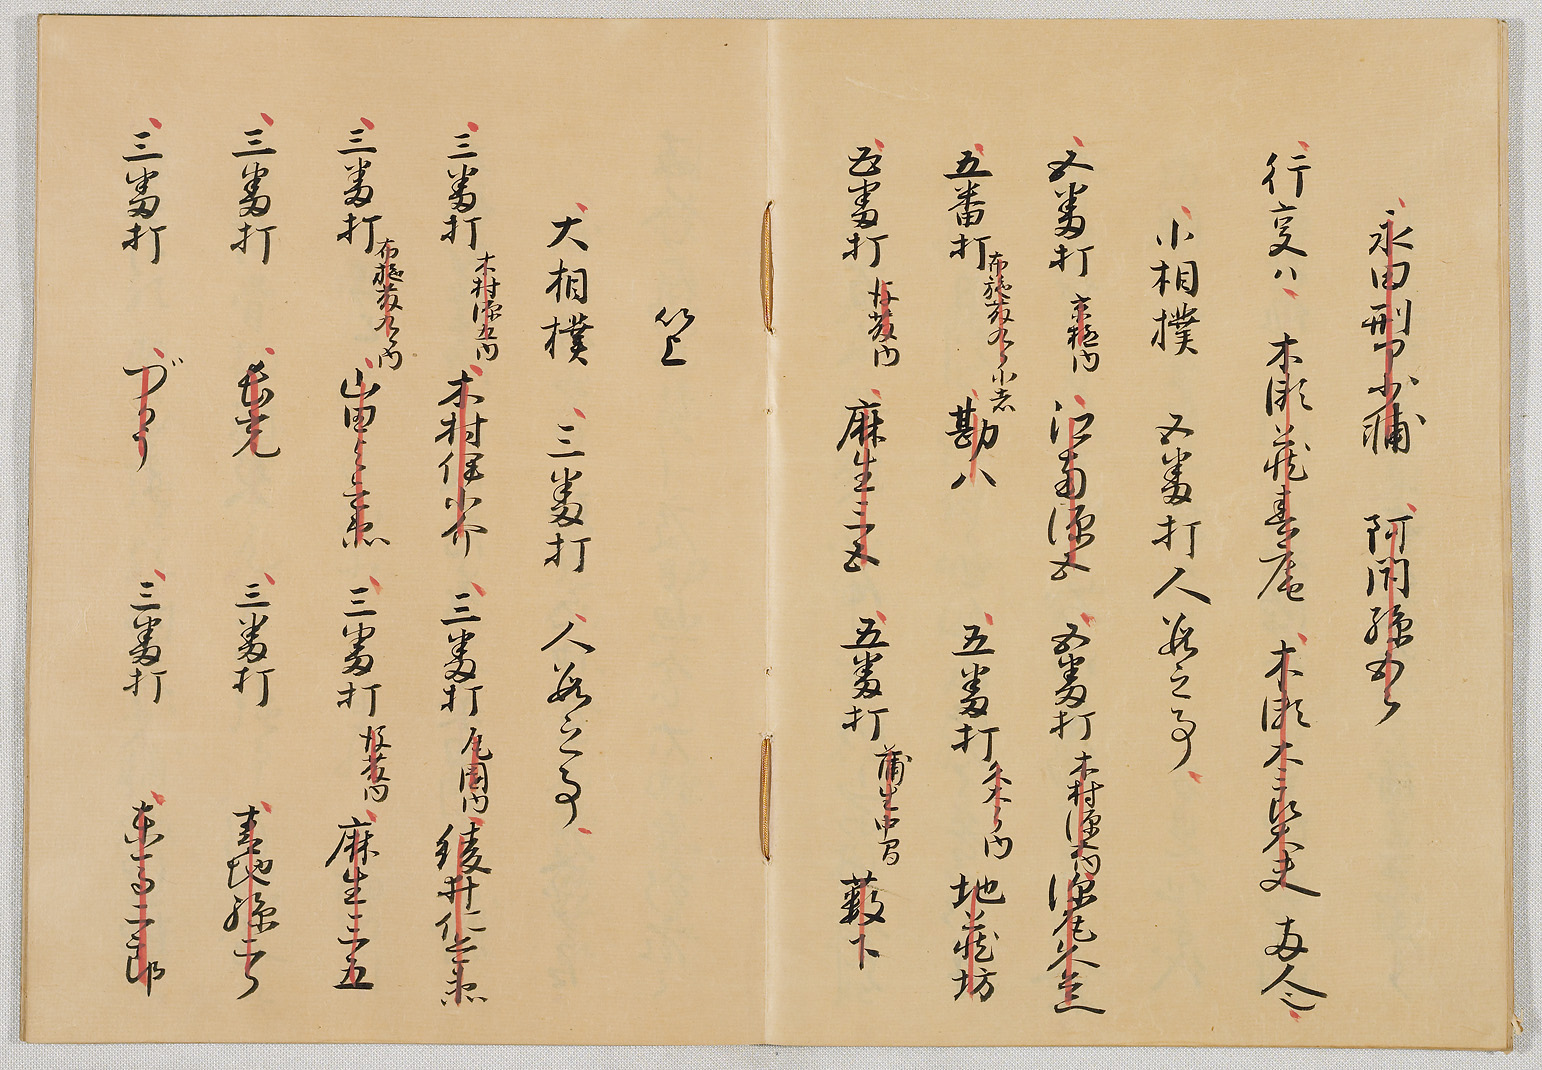 永田刑部少輔 阿閉孫五郎
行事ハ 木瀬蔵春庵 木瀬太郎大夫 両人也
小相撲 五番打人数之事
五番打 京極内 江南源五 五番打 木村源五内 深尾久兵衛
五番打 布施藤九郎小者 勘八 五番打 久太郎内 地蔵坊
五番打 後藤内 麻生三五 五番打 蒲生中間 藪下
以上
大相撲 三番打 人数之事
三番打 木村源五内 木村伊小介 三番打 瓦園内 綾井二兵衛
三番打 布施藤九郎内 山田与兵衛 三番打 後藤内 麻生三五
三番打 長光 三番打 青地孫二郎
三番打 づかう 三番打 東馬二郎